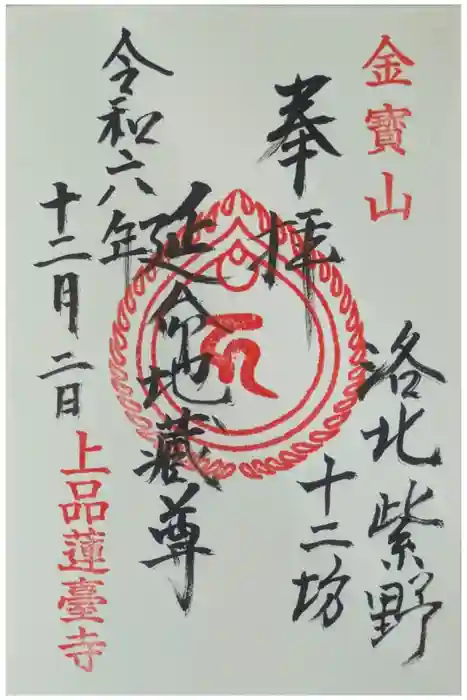 金寶山
洛北紫野
十二坊
奉拝
延命地蔵尊
令和六年
十二月二日
上品蓮臺寺